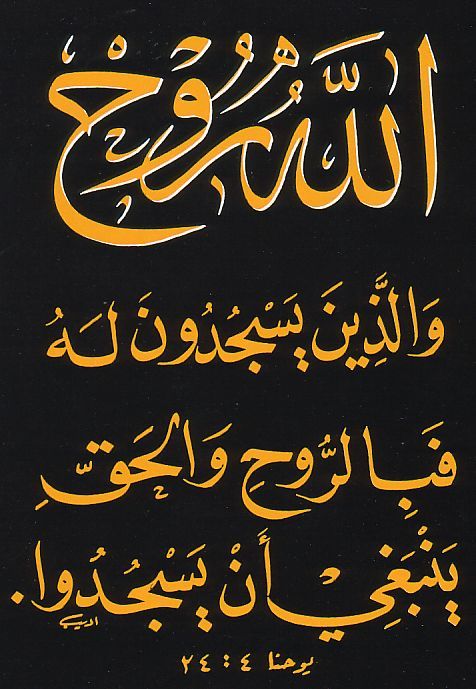 اللهُ رُوحٌ
وَالَّذِينَ يَسْجُدُونَ لَهُ
فَبِالرُّوحِ وَالحَقِّ
يَنْبَغِي أَنْ يَسْجُدُوا.
يوحنا ٤ : ٢٤